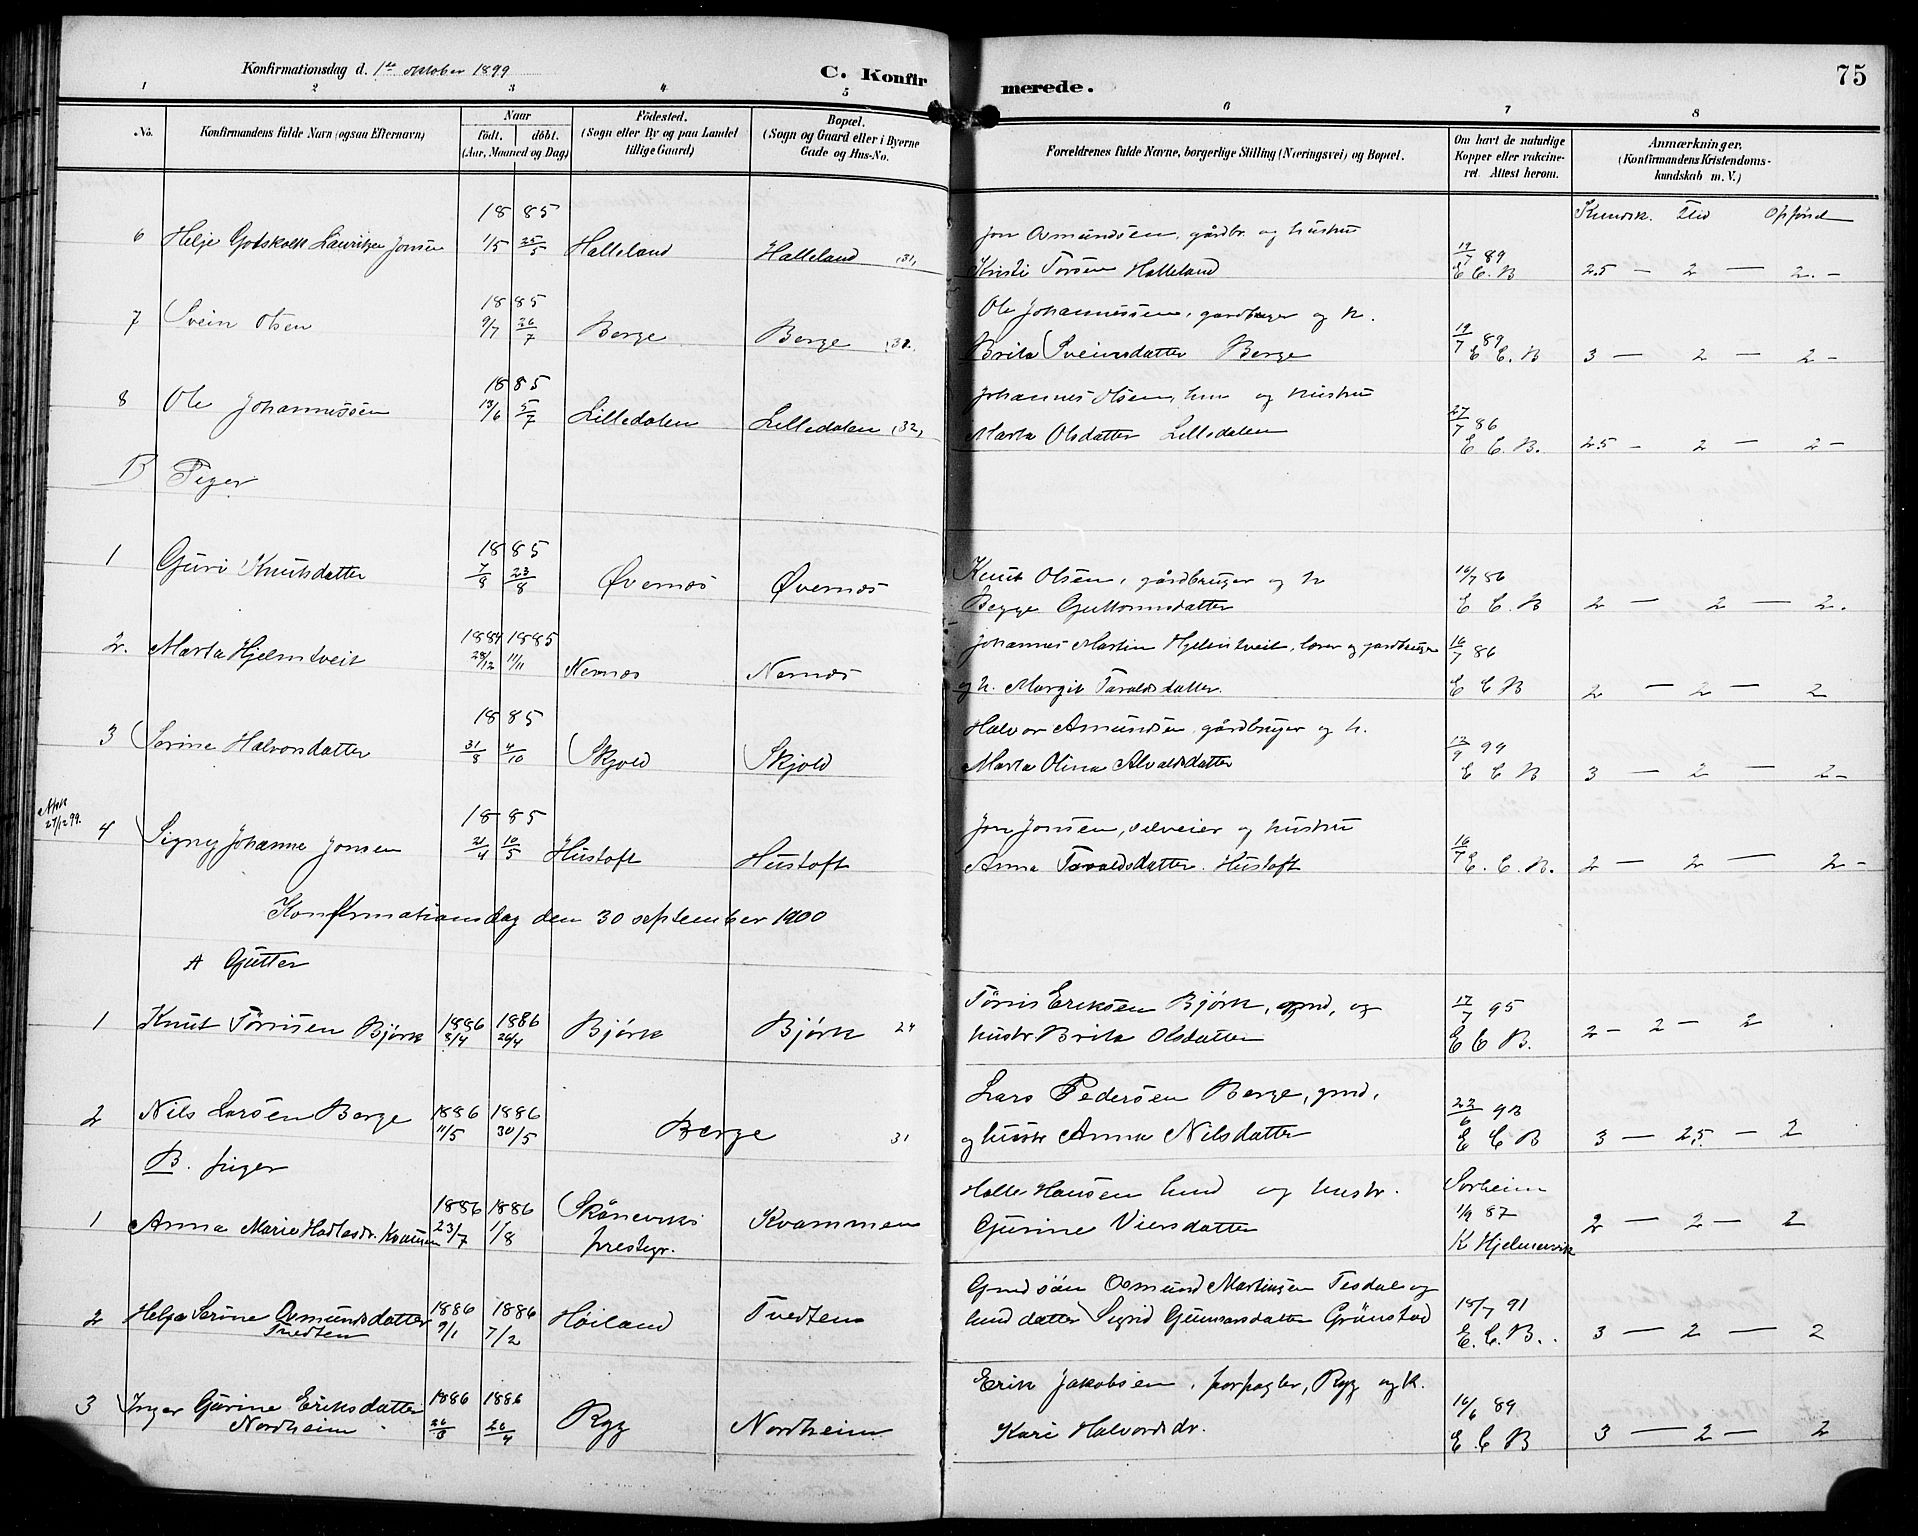 Konfirmationsdag d. 1ste oktober 1899
C. Konfirmerede.
75
1 2 3 4 5 6 7 8
No.
Konfirmandens fulde Navn (ogsaa Efternavn)
Naar
födt. döbt.
(Aar, Maaned og Dag)
Födested.
(Sogn eller By og paa Landet
tillige Gaard)
Bopæl.
(Sogn og Gaard eller i Byerne
Gade og Hus-No.
Forældrenes fulde Navne, borgerlige Stilling (Næringsvei) og Bopæl.
Om havt de naturlige
Kopper eller vakcine-
ret. Attest herom.
Anmærkninger.
(Konfirmandens Kristendoms-
kundskab m. V.)
Kundsk. Flid Opførsel
6 Helje Godskalk Lauritzen Jonsen 1885 1/5 25/5 Halleland Halleland (31)
Jon Osmundsen, gårdbr. og hustru
Kristi Torsen Halleland
19/7 89
E C. B 2.5 — 2 — 2. -
7 Svein Olsen 1885 9/7 26/7 Berge Berge (30.
Ole Johannessen, gardbruger og h.
Brita Sveinsdatter Berge
19/7 89
E C. B 3 — 2 — 2 -
8 Ole Johannessen 1885 13/6 5/7 Lilledalen Lilledalen (32)
Johannes Olsen, hm og hustru
Marta Olsdatter Lilledalen
27/7 86
E C. B. 2.5 - 2 — 2 -
B Piger
1 Guri Knutsdatter 1885 7/8 23/8 Øvernæs Øvernæs
Knut Olsen, gårdbruger og h
Begge Guttormsdatter
16/7 86
E C. B 2 — 2 — 2.
2. Marta Hjelmtveit 1884 28/12 1885 11/11 Nernæs Nernæs
Johannes Martin Hjelmtveit, lærer og gardbruger
og h. Margit Taraldsdatter.
16/7 86
E C B 2 — 2 — 2
3 Serine Halvorsdatter 1885 31/8 4/10 Skjold Skjold
Halvor Amundsen gårdbruger og h.
Marta Olina Alvaldsdatter
12/9 99
E C B 3 — 2 — 2 -
27/12 99.
4 Signy Johanne Jonsen 1885 21/4 10/5 Hustoft Hustoft
Jon Jonsen, selveier og hustru
Anna Taraldsdatter. Hustoft
16/7 E. C. B. 2 — 2 — 2 -
Konfirmationsdag den 30 september 1900
A Gutter
1 Knut Tørrisen Bjørk 1886 8/4 1886 26/4 Bjørk Bjørk 24
Tørris Eriksen Bjørk, gmd, og
hustr Brita Olsdatter
17/7 95
E C B. 2 - 2 — 2
2 Nils Larsen Berge 1886 11/5 1886 30/5 Berge 31
Lars Pedersen Berge, gmd,
og hustr Anna Nilsdatter
23/6 93
E C B 3 — 2,5. — 2
B. piger
1 Anna Marie Hallesdr. Kvammen 1886 23/7 1886 1/8 Skånevik
prestegr. Kvammen
Halle Hansen hmd og hustr.
Gurine Viersdatter
Sørheim
1/9 87
K Hjelmervik 2 — 2 — 2
2 Helga Serine Osmundsdatter
Tvedten 1886 9/1 1886 7/2 Høiland Tvedten
Gmd søn Osmund Martinsen Tesdal og
hmd datter Sigrid Gunnarsdatter Grönstad
18/7 91
E. C. B.. 3 — 2 — 2
3 Inger Gurine Eriksdatter
Nordheim 1886 26/3 1886 26/4 Ryg Nordheim
Erik Jakobsen, forpagter, Ryg og h.
Kari Halvordsdr.
16/6 89
E. C B 3 — 2 — 2